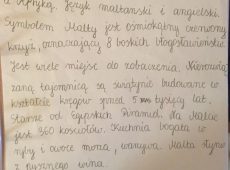 a Afryką. Język maltański i angielski.
Symbolem Malty jest ośmiokątny czerwony
krzyż, oznaczający 8 boskich błogosławieństw.
Jest wiele miejsc do zobaczenia. Nierozwią
zaną tajemnicą są świątynie budowane w
kształcie kręgów przed 5 tysięcy lat.
Starsze od Egipskich Piramid. Na Malcie
jest 360 kościołów. Kuchnia bogata w
ryby i owoce morza, warzywa. Malta słynie
z pysznego wina.